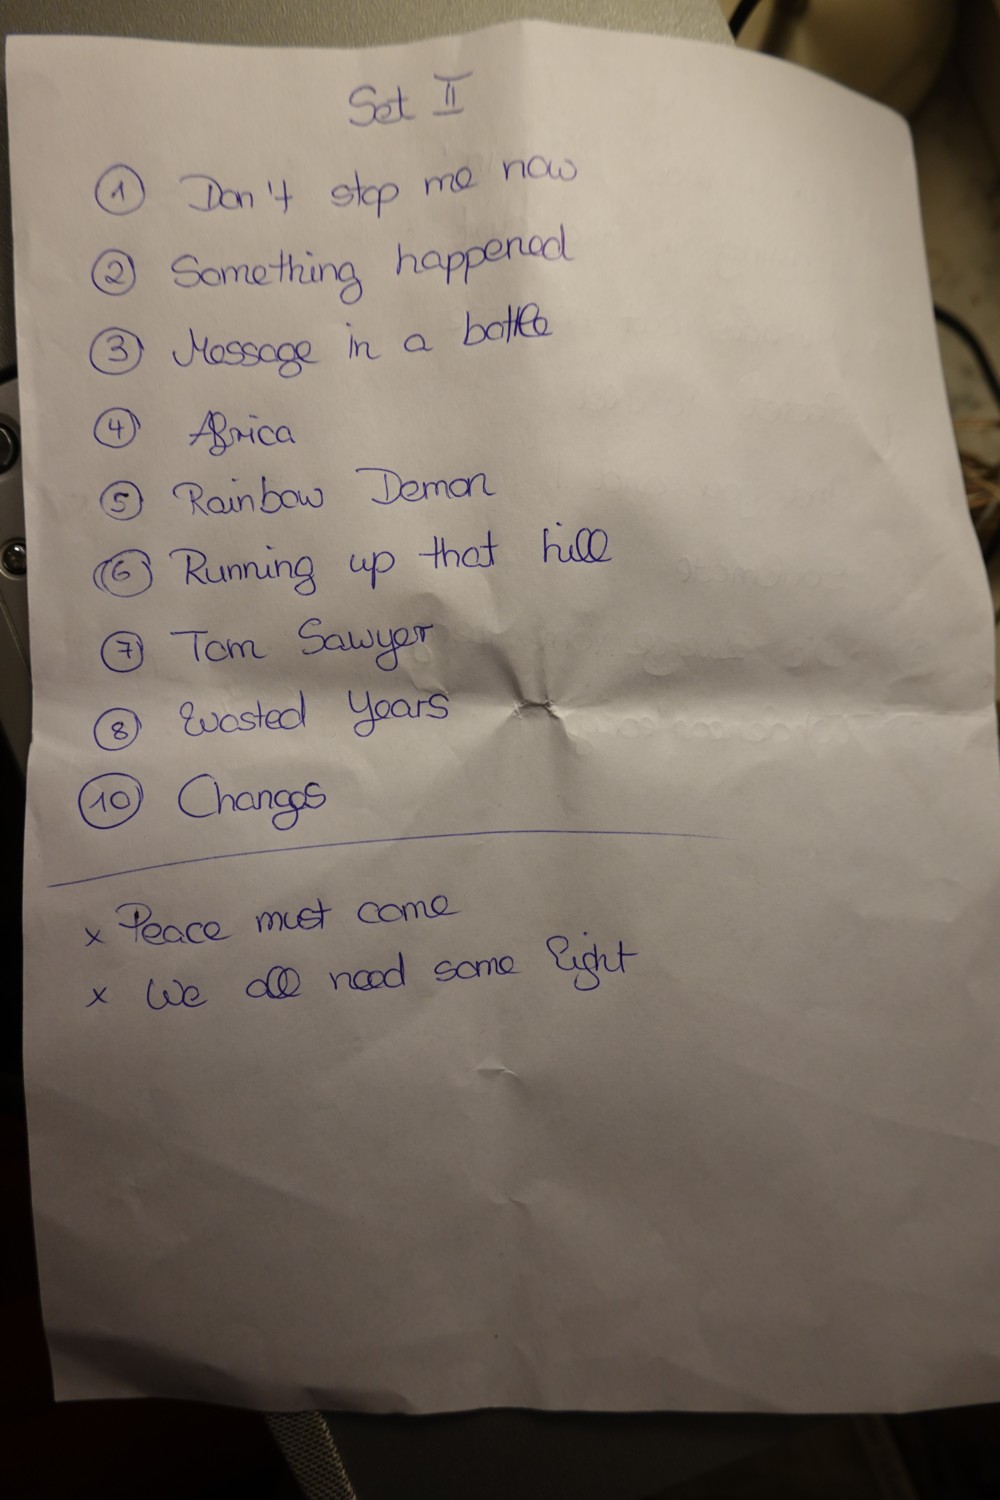 Set II
1 Don't stop me now
2 Something happened
3 Message in a bottle
4 Africa
5 Rainbow Demon
6 Running up that hill
7 Tom Sawyer
8 Wasted Years
10 Changes
x Peace must come
x We all need some light